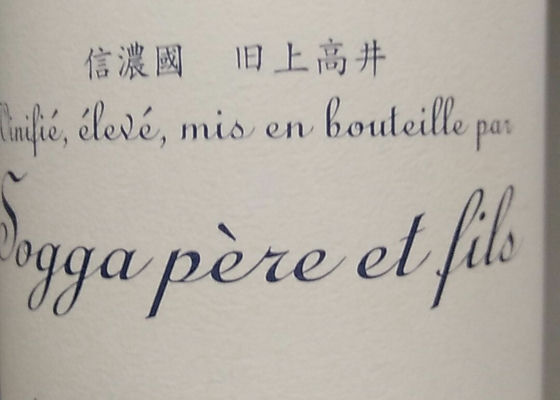 信濃國 旧上高井
Vinifié, élevé, mis en bouteille par
Sogga père et fils